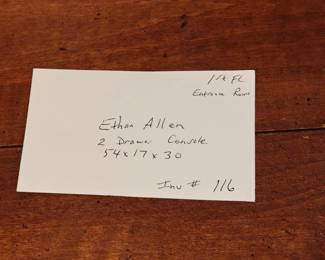 1st FL
Entrance Room
Ethan Allen
2 Drawer Console
54x17x30
Inv # 116